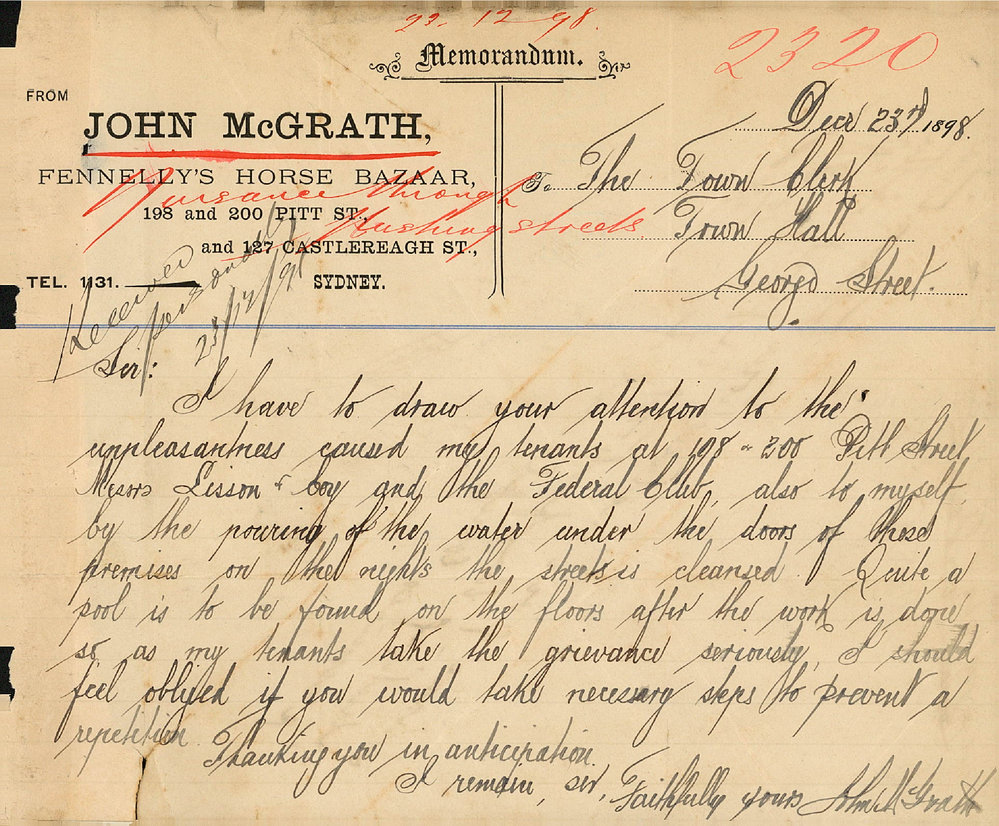 23. 12. 98.
2320
Memorandum.
FROM
JOHN McGRATH,
FENNELLY'S HORSE BAZAAR,
198 and 200 PITT ST.,
and 127 CASTLEREAGH ST.,
TEL. 1131.
SYDNEY.
Nuisance through
flushing streets
Received
personally
23/12/98
Decr 23rd 1898.
To The Town Clerk
Town Hall
George Street.
Sir:
I have to draw your attention to the
unpleasantness caused my tenants at 198 & 200 Pitt Street
Messrs Lisson & Coy and the Federal Club, also to myself,
by the pouring of the water under the doors of these
premises on the nights the streets is cleansed. Quite a
pool is to be found on the floors after the work is done
so as my tenants take the grievance seriously, I should
feel obliged if you would take necessary steps to prevent a
repetition.
Thanking you in anticipation.
I remain, sir,
Faithfully yours John McGrath